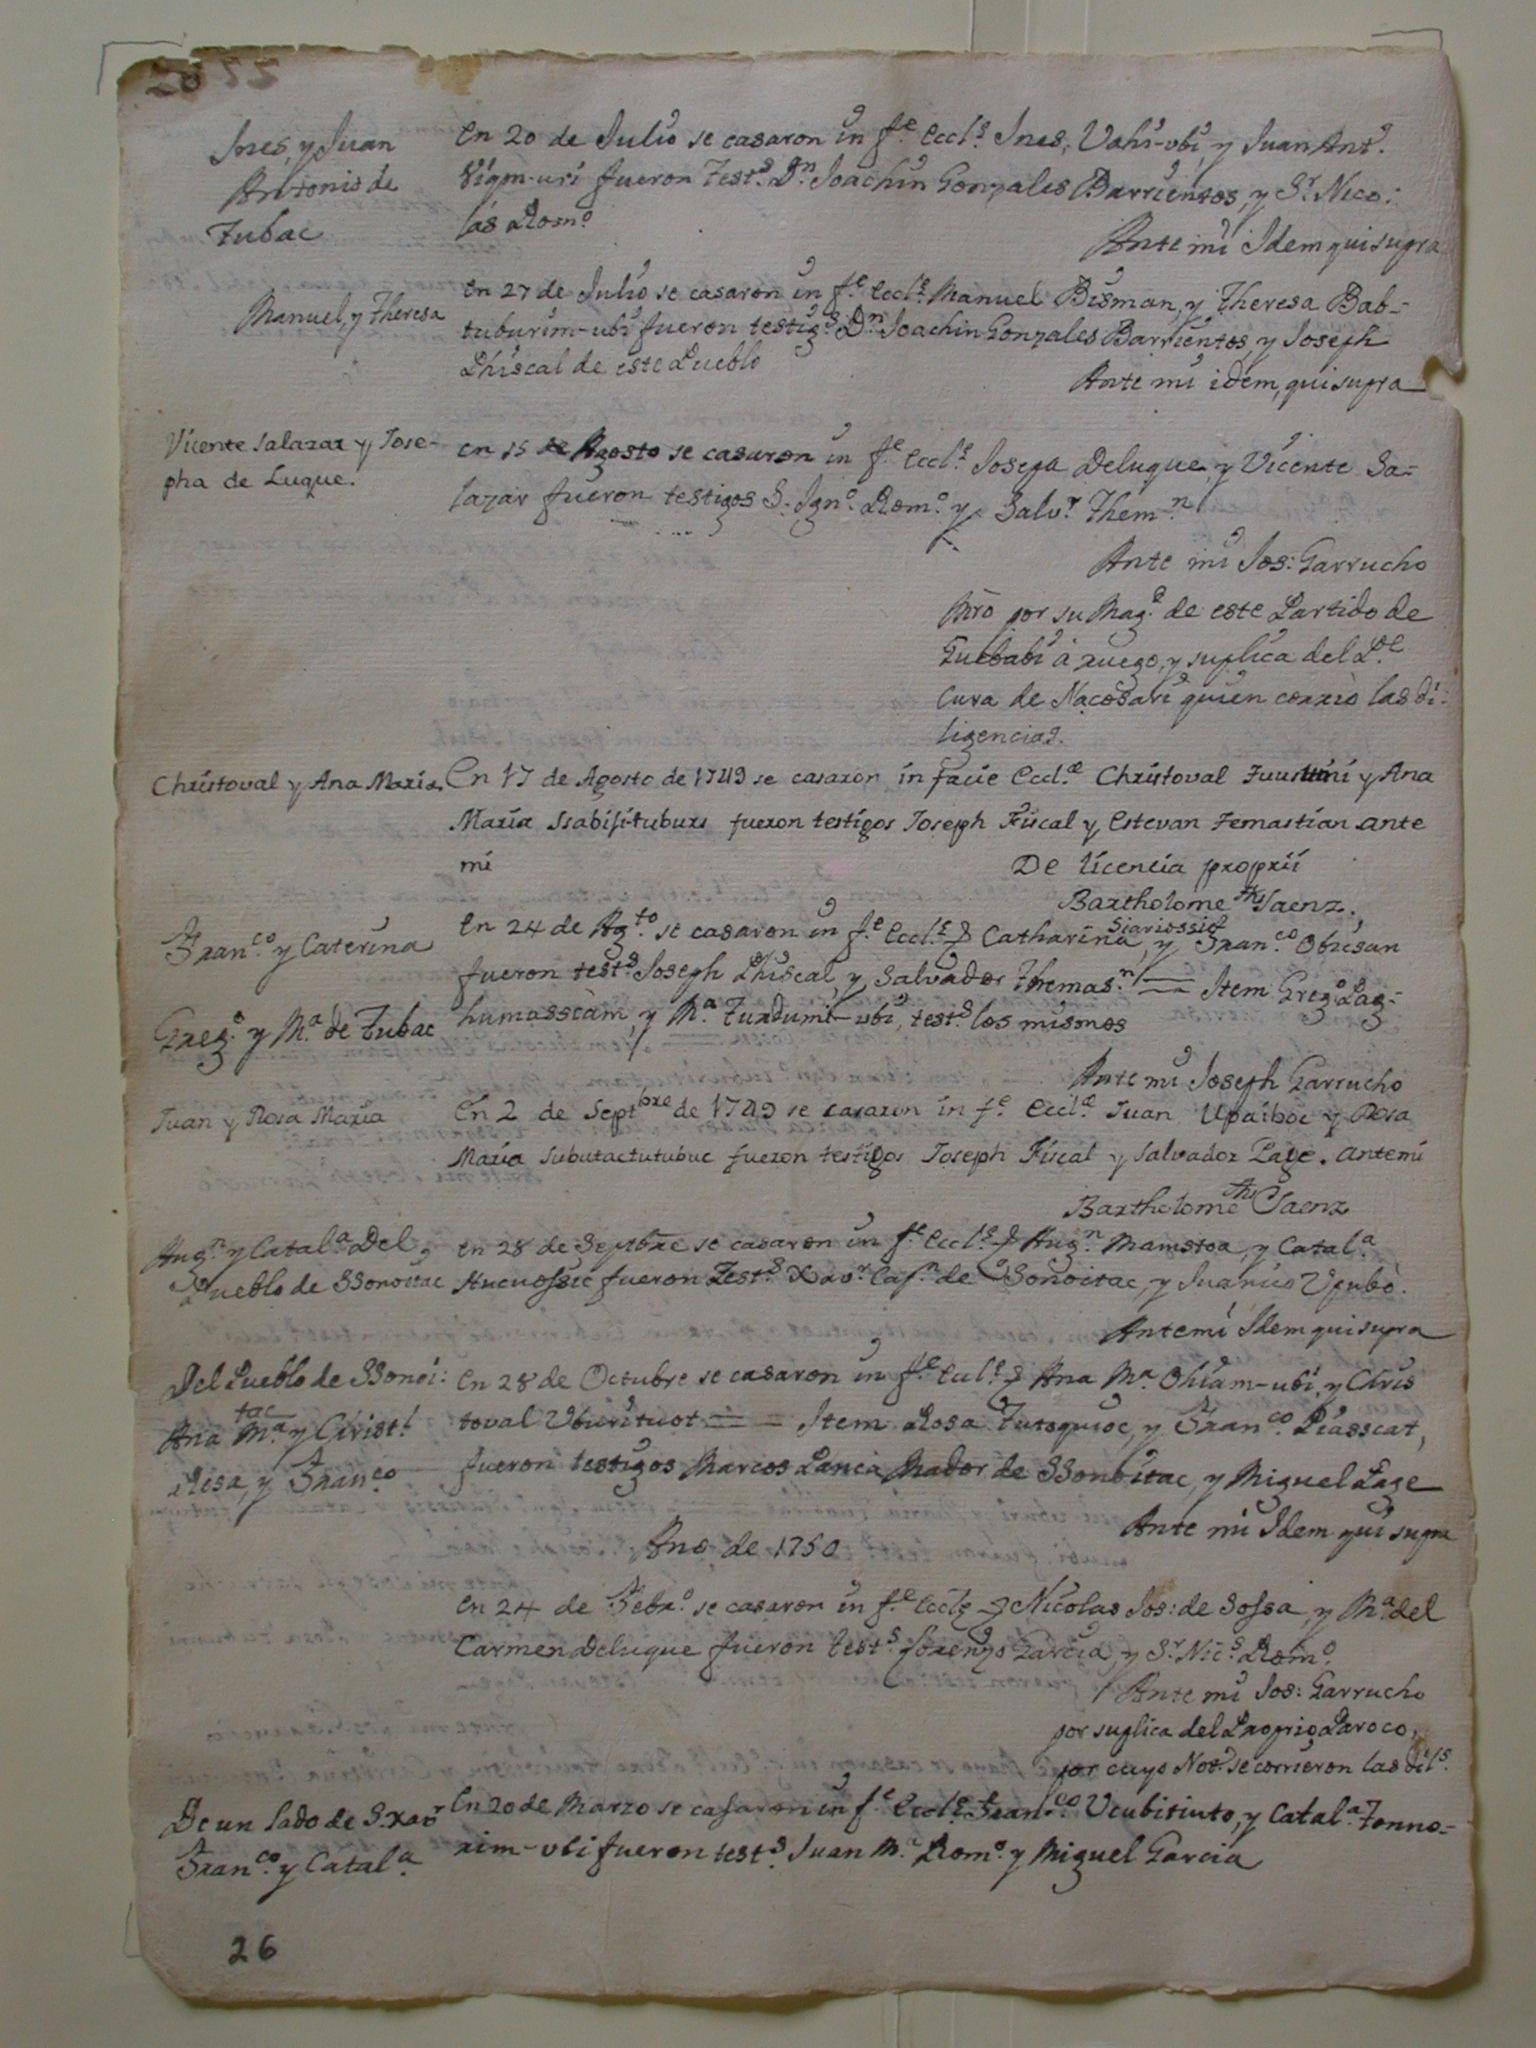 Ines, y Juan
Antonio de
Tubac
En 20 de Julio se casaron in f.e Eccl.e Ines, Vahi-ubi, y Juan Ant.o
fueron Test.s D.n Joachin Gonzales Barrientos, y S.r Nico:
las Rom.o
Ante mi Idem qui supra
Manuel, y Theresa
En 27 de Julio se casaron in f.e Eccl.e Manuel Bisman, y Theresa Bab-
tuburim-ubi fueron testig.s D.n Joachin Gonzales Barrientos, y Joseph
Phiscal de este Pueblo
Ante mi idem, qui supra
Vicente Salazar y Jose-
pha de Luque.
En 15 de Agosto se casaron in f.e Eccl.e Josepa Deluque, y Vicente Sa-
lazar fueron testigos S. Ign.o Rom.o y Salv.r Them.n
Ante mi Jos: Garrucho
Mrõ por su Mag.d de este Partido de
Guebabi à ruego, y suplica del P.e
Cura de Nacosari quien corriò las di:
ligencias.
Christoval y Ana Maria.
En 17 de Agosto de 1749 se casaron in facie Eccl.æ Christoval y Ana
Maria Ssabisi-tuburs fueron testigos Joseph Fiscal y Estevan Temastian ante
mi
De licencia proprii
Bartholome Saenz.
Fran.co y Caterina
En 24 de Ag.to se casaron in f.e Eccl.e Catharina Sigriossic, y Fran.co Obicsan
fueron test.s Joseph Phiscal, y Salvador Themas.n == Item Greg.o Pag-
Greg.o y M.a de Tubac
humasscàm, y M.a Turdumi-ubi, test.s los mismos
Ante mi Joseph Garrucho
Juan y Rosa Maria
En 2 de Sept.bre de 1749 se casaron in f.e Eccl.æ Juan Upaiboc y Rosa
Maria Subutactutubuc fueron testigos Joseph Fiscal y Salvador Page. ante mi
Bartholome Saenz
Aug.n y Catal.a Del
Pueblo de SSonoitac
En 28 de Septbre se casaron in f.e Eccl.e Aug.n Mamstoa, y Catal.a
Hucuossic fueron Test.s Xav.r Cap.n de Sonoitac, y Juanico Upubò.
Ante mi Idem qui supra
Del Pueblo de SSonoi:
tac
Ana M.a y Christ.l
Rosa, y Fran.co
En 28 de Octubre se casaron in f.e Ecl.e Ana M.a Ohiam-ubi, y Chris
toval Uburituot == Item Rosa Tutoquioc, y Fran.co Piasscat,
fueron testigos Marcos Pancia Mador de SSonoitac, y Miguel Page
Ante mi Idem qui supra
Ano de 1750
En 24 de Febr.o se casaron in f.e Eccle Nicolas Jos: de Sossa, y M.a del
Carmen Deluque fueron test.s Lorenzo Garcia, y S.r Nic.s Rom.o
Ante mi Jos: Garrucho
por suplica del Proprio Paroco,
por cuyo Not.o se corrieron las dil.s
De un lado de S. Xav.r
Fran.co y Catal.a
En 20 de Marzo se casaron in f.e Eccl.e Fran.co Ucubitiuto, y Catal.a Tonno-
rim-ubi fueron test.s Juan M.l Rom.o y Miguel Garcia
26